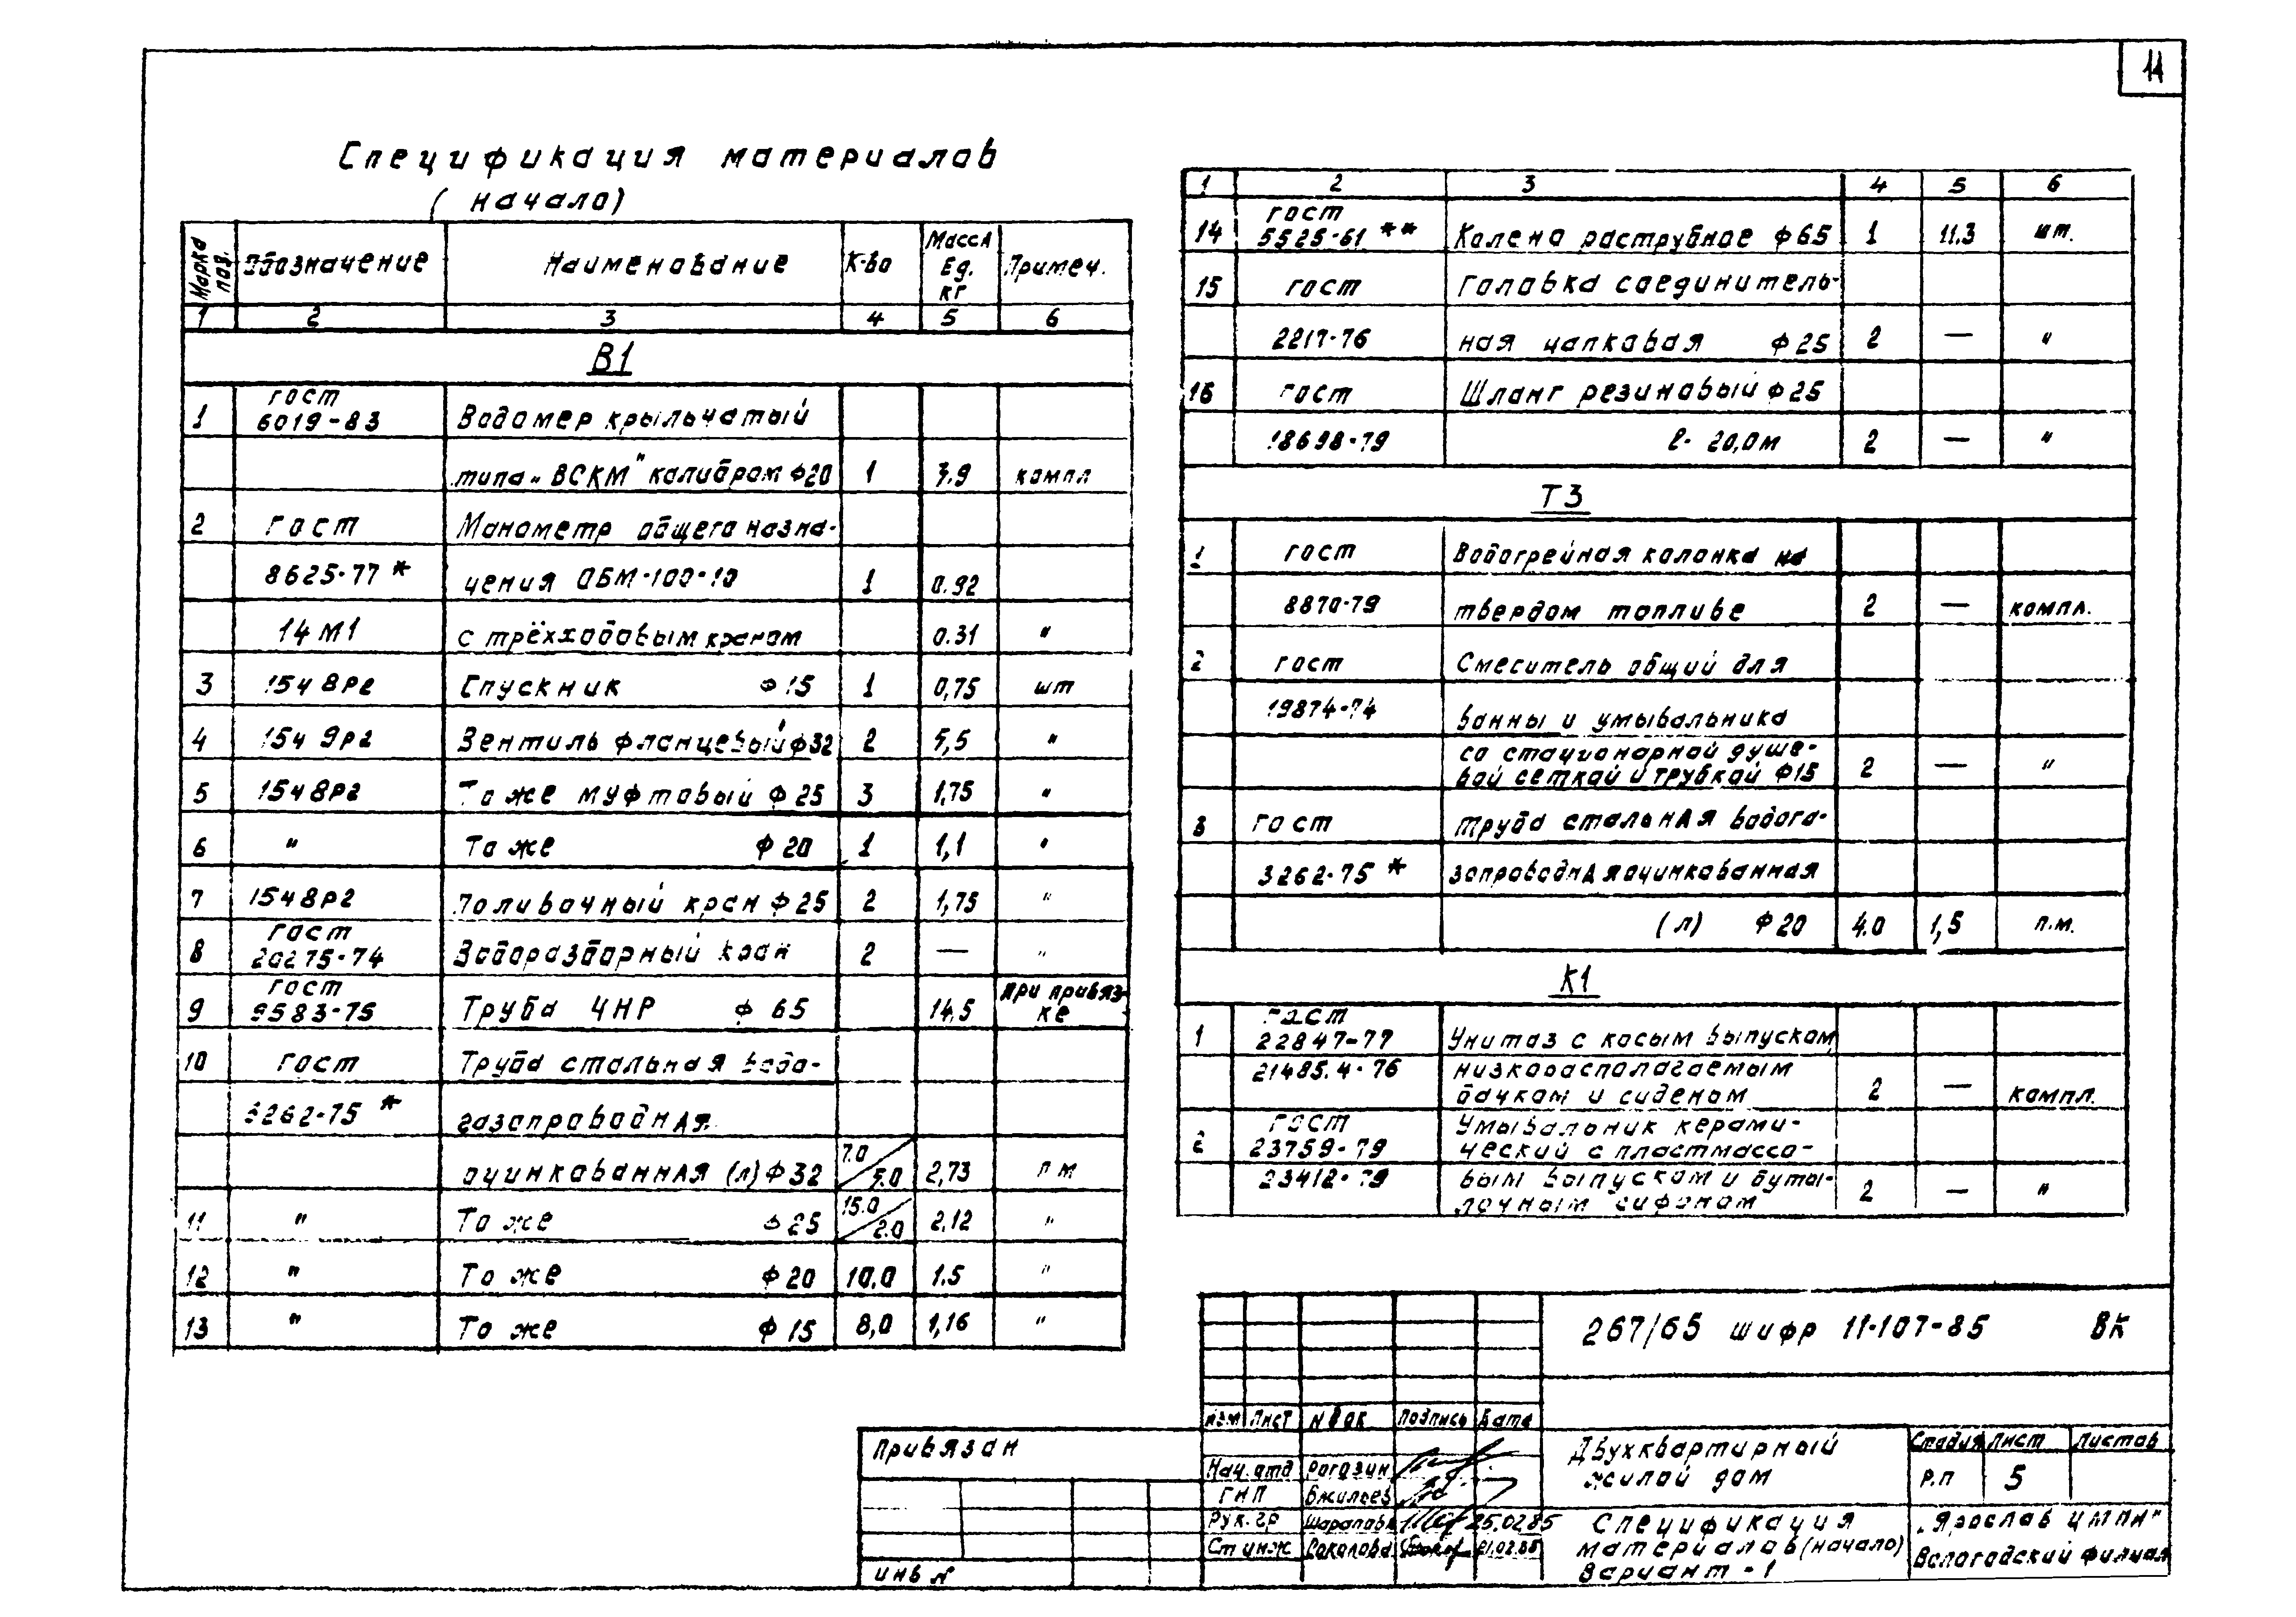 11
Спецификация материалов
(начало)
Марка поз. Обозначение Наименование К-во Масса Ед. кг Примеч.
1 2 3 4 5 6
В1
1 гост 6019-83 Водомер крыльчатый
типа „ВСКМ" калибром ф20 1 3.9 компл
2 гост Манометр общего назна-
8625-77* чения ОБМ-100-10 1 0.92
14М1 с трёхходовым краном 0.31 "
3 15ч 8р2 Спускник ф15 1 0,75 шт
4 15ч 9р2 Вентиль фланцевый ф32 2 5,5 "
5 15ч8р2 То же муфтовый ф25 3 1,75 "
6 " То же ф20 1 1,1 "
7 15ч8р2 Поливочный кран ф25 2 1,75 "
8 гост 20275-74 Водоразборный кран 2 — "
9 гост 9583-75 Труба ЧНР ф 65 14,5 При привяз-ке
10 гост Труба стальная водо-
3262-75* газопроводная
оцинкованная (л) ф32 7.0/5.0 2,73 п м
11 " То же ф25 15.0/2.0 2,12 "
12 " То же ф20 10,0 1.5 "
13 " То же ф15 8,0 1,16 "
1 2 3 4 5 6
14 гост 5525-61** Колено раструбное ф65 1 11.3 шт.
15 гост Головка соединитель-
2217-76 ная цапковая ф25 2 — "
16 гост Шланг резиновый ф25
18698-79 ℓ- 20,0м 2 — "
Т3
1 гост Водогрейная колонка на
8870-79 твердом топливе 2 — компл.
2 гост Смеситель общий для
19874-74 ванны и умывальника
со стационарной душе-
вой сеткой и трубкой ф15 2 — "
3 гост Труба стальная водога-
3262-75* зопроводная оцинкованная
(л) ф20 4.0 1,5 п.м.
К1
1 гост 22847-77 Унитаз с косым выпуском,
21485.4-76 низкорасполагаемым
бачком и сиденом 2 — компл.
2 гост 23759-79 Умывальник керами-
ческий с пластмассо-
23412-79 вым выпуском и буты-
лочным сифоном 2 — "
267/65 шифр 11-107-85 ВК
Изм Лист N док Подпись Дата
Привязан
Нач.отд Рогозин
ГИП
Рук.гр 25.02.85
Ст инж Соколова 21.02.85
инв N
Двухквартирный
жилой дом
Стадия Лист Листов
Р.П 5
Спецификация
материалов (начало)
Вариант - 1
Вологодский филиал